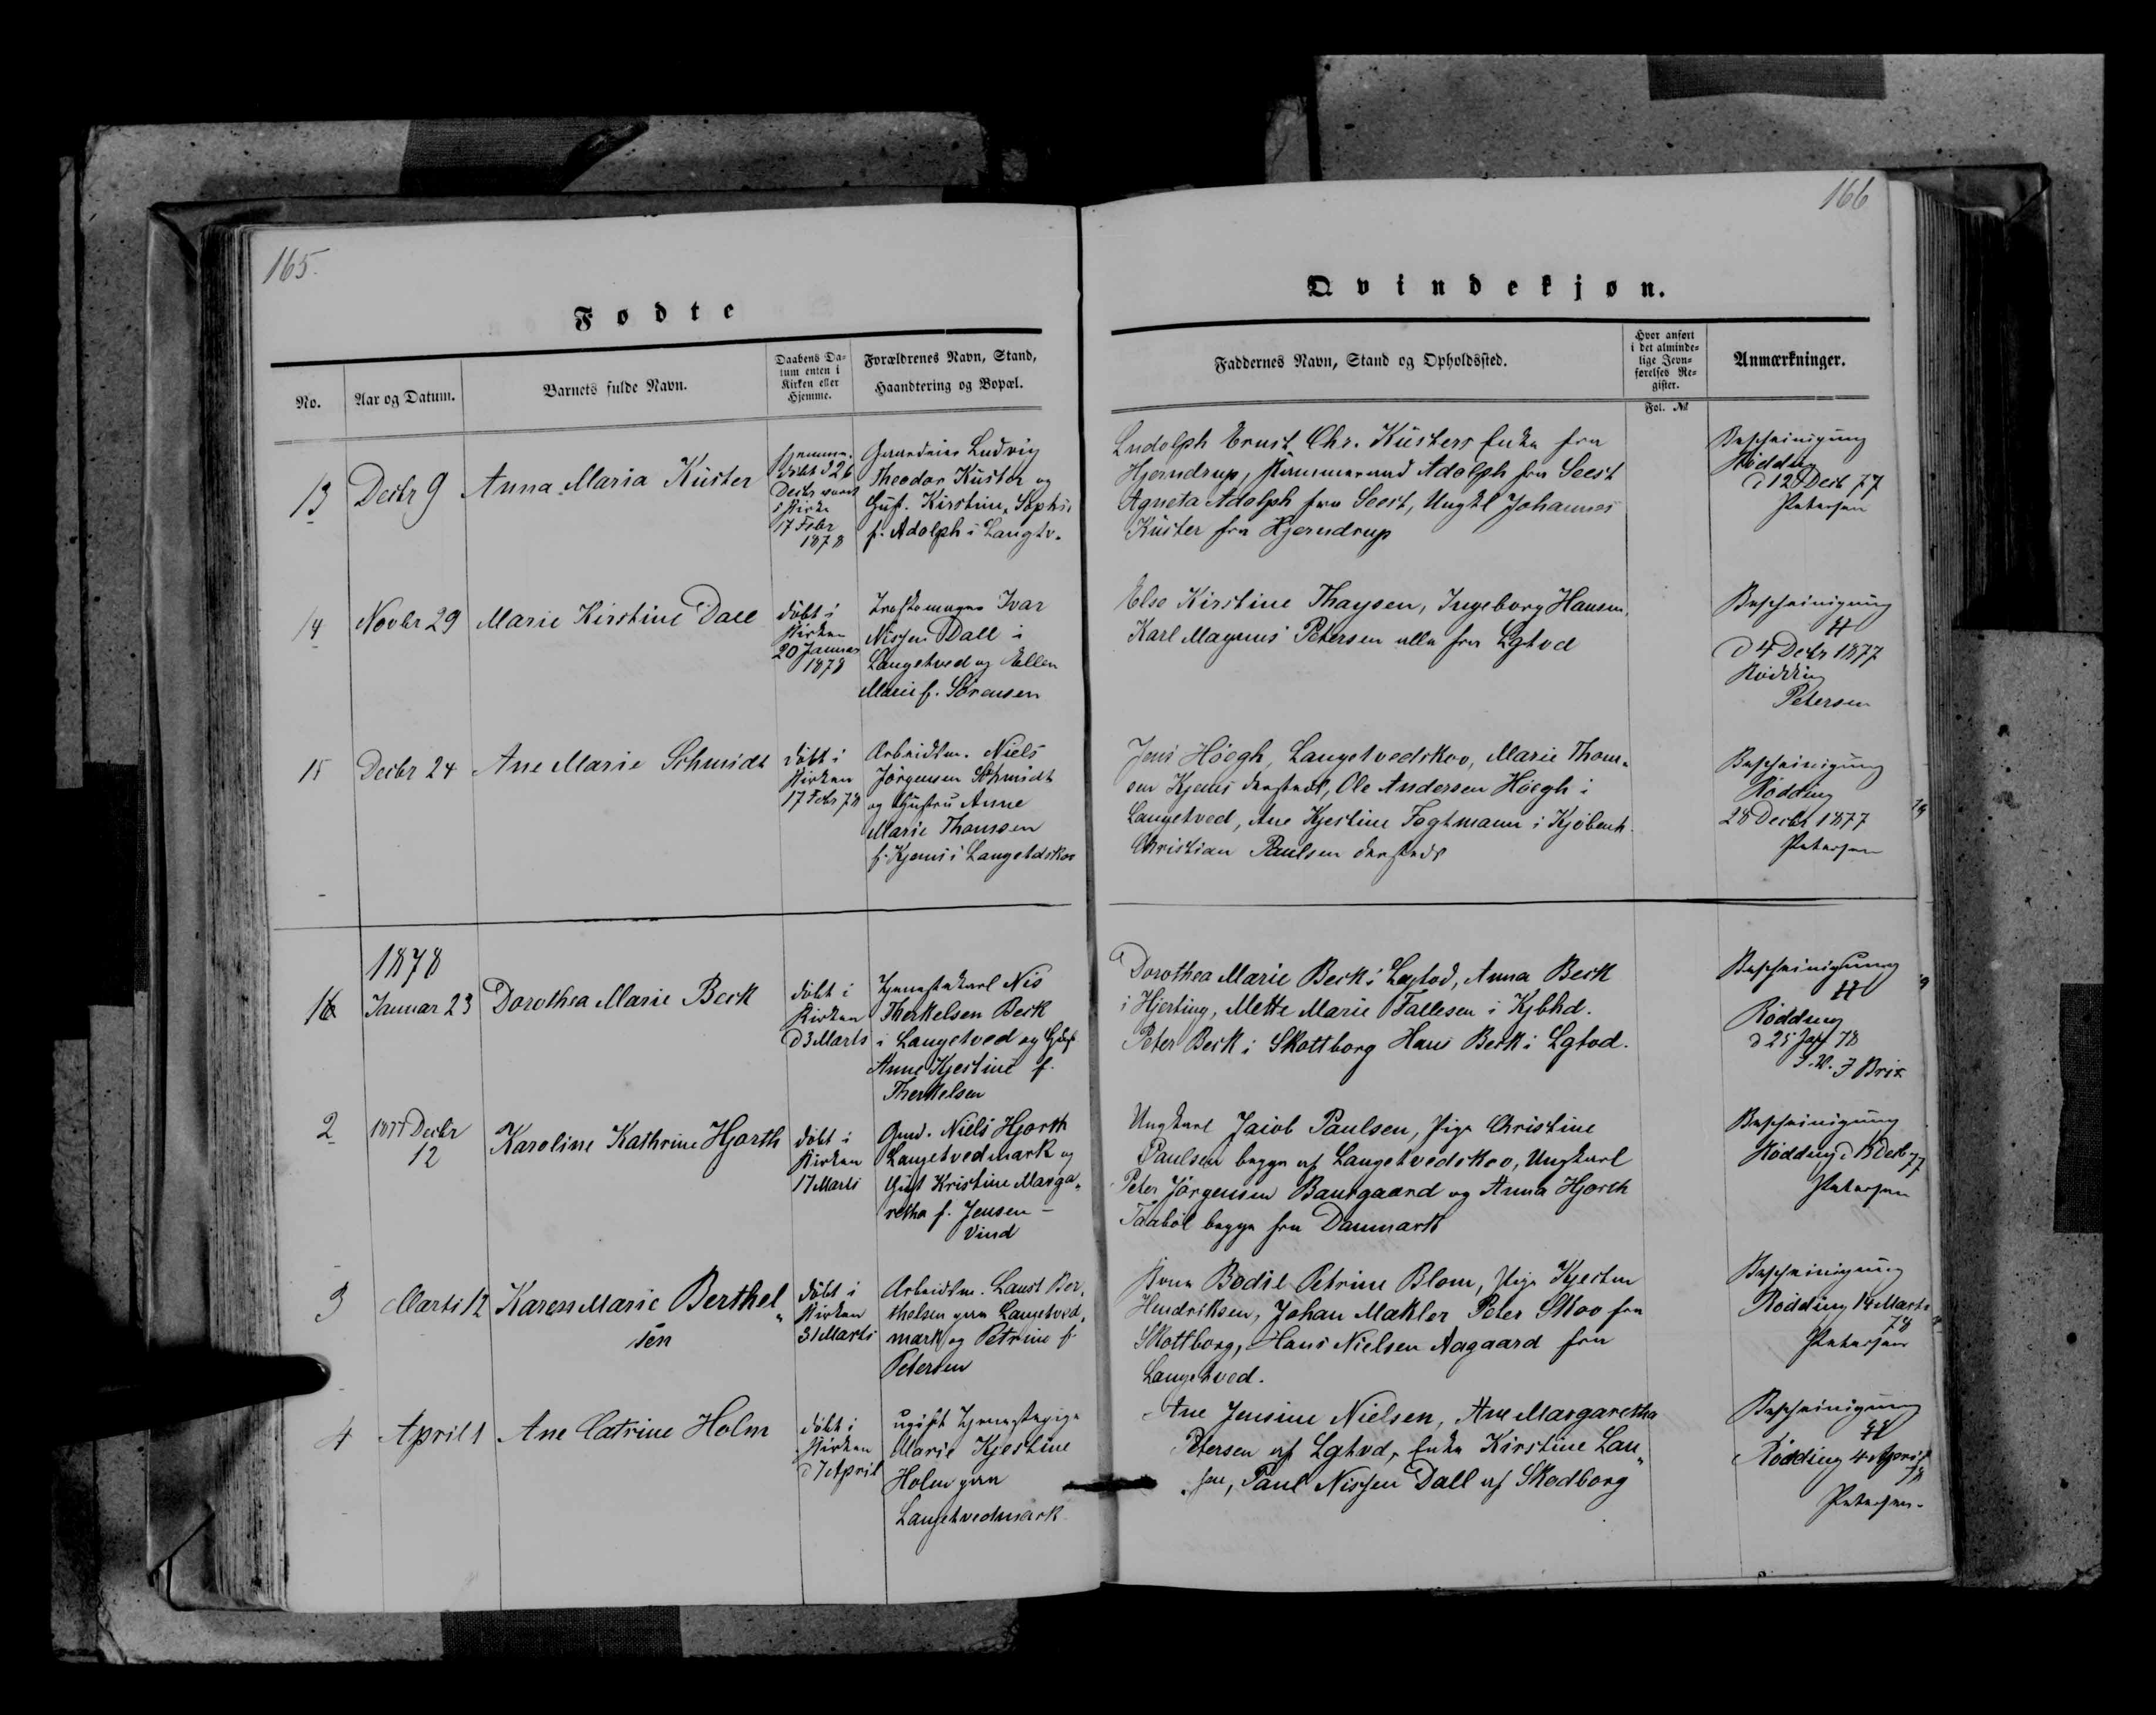 165.
166
Fødte
Qvindekjøn.
No.
Aar og Datum.
Barnets fulde Navn.
Daabens Da-
tum enten i
Kirken eller
Hjemme.
Forældrenes Navn, Stand,
Haandtering og Bopæl.
Faddernes Navn, Stand og Opholdssted.
Hvor anført
i det alminde-
lige Jevn-
førelses Re-
gister.
Fol. №
Anmærkninger.
13
Decbr 9
Anna Maria Küster
Hjemme-
döbt d 26
Decbr
i Kirke
17 Febr
1878
Gaardeier Ludvig
Theodor Küster og
Hust. Kirstine Sophie
f. Adolph i Langtv.
Ludolph Ernst Chr. Küsters Enke fra
Hjerndrup, Adolph fra Seest
Agneta Adolph fra Seest, Ungkl Johannes
Küster fra Hjerndrup
Bescheinigung
Rödding
d 12 Decb 77
Petersen
14
Novbr 29
Marie Kirstine Dall
döbt i
Kirken
20 Januar
1878
Træskomager Ivar
Nissen Dall i
Langetved og Ellen
Marie f. Sörensen
Else Kirstine Thaysen, Ingeborg Hansen,
Karl Magnus Petersen alle fra Lgtvd
Bescheinigung
d 4 Decbr 1877
Rödding
Petersen
15
Decbr 24
Ane Marie Schmidt
döbt i
Kirken
17 Febr 78
Arbeidsm. Niels
Jörgensen Schmidt
og Hustru Anne
Marie Thomsen
f. Kjems i Langetdskov
Jens Höegh, Langetvedskov, Marie Thom-
sen Kjems dersteds, Ole Andersen Höegh i
Langetved, Ane Kjestine Fogtmann i Kjöbenh.
Christian Paulsen dersteds
Bescheinigung
Rödding
28 Decbr 1877
Petersen
1878
1
Januar 23
Dorothea Marie Beck
döbt i
Kirken
d 3 Marts
Tjenestekarl Nis
Therkelsen Beck
i Langetved og Hust
Anne Kjestine f.
Therkelsen
Dorothea Marie Beck i Lgtvd, Anna Beck
i Hjerting, Mette Marie Fallesen i Kjbhd.
Peter Beck i Skottborg Hans Beck i Lgtvd.
Bescheinigung
Rödding
d 25 Jan 78
J. V. J Brix
2
1877 Decbr
12
Karoline Kathrine Hjorth
döbt i
Kirken
17 Marts
Gmd. Niels Hjorth
Langetvedmark og
Hust Kristine Marga-
retha f. Jensen -
Vind
Ungkarl Jacob Paulsen, Pige Christine
Paulsen begge af Langetvedskov, Ungkarl
Peter Jörgensen Baurgaard og Anna Hjorth
Taaböl begge fra Danmark
Bescheinigung
Rödding d 15 Decb 77
Petersen
3
Marts 12
Karen Marie Berthel-
sen
döbt i
Kirken
31 Marts
Arbeidsm. Laust Ber-
thelsen paa Langetved-
mark og Petrine f.
Petersen
Kone Bodil Petrine Blom, Pige Kjesten
Hendriksen, Johan Makler Peter Skov fra
Skottborg, Hans Nielsen Aagaard fra
Langetved.
Bescheinigung
Rödding 14 Marts
78
Petersen
4
April 1
Ane Catrine Holm
döbt i
Kirken
d 7 April
ugift Tjenestepige
Marie Kjestine
Holm paa
Langetvedmark
Ane Jensine Nielsen, Ane Margaretha
Petersen af Lgtvd, Enke Kirstine Lau-
sen, Paul Nissen Dall af Skodborg
Bescheinigung
Rödding 4 April
78
Petersen.